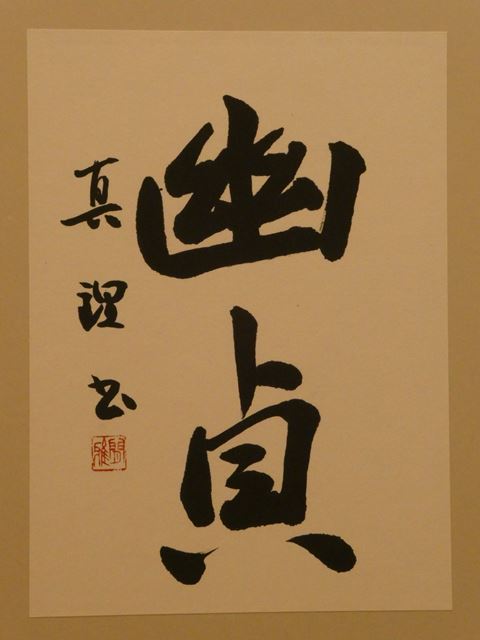 幽貞
真理书